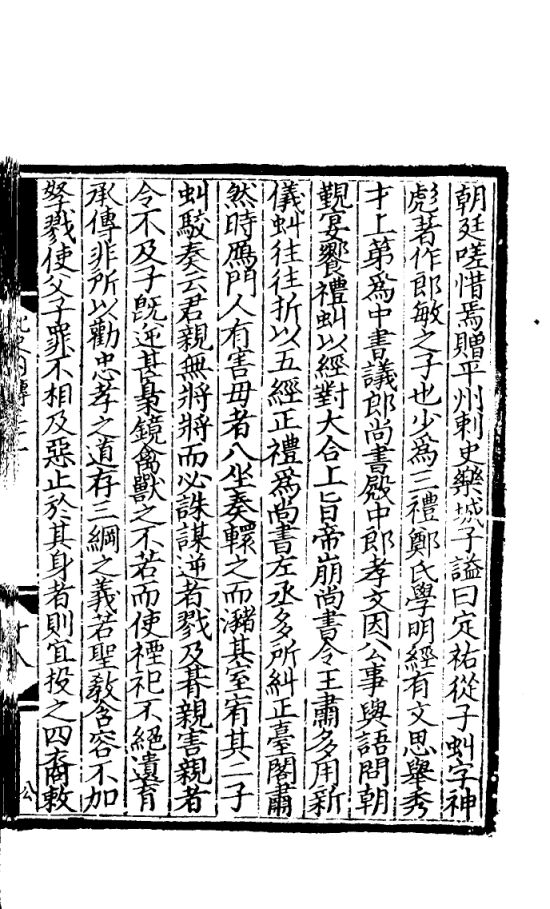 朝廷嗟惜焉贈平州刺史藥城子謚曰定祐從子虯字神
彪著作郎敏之子也少爲三禮鄭氏學明經有文思舉秀
才上第爲中書議郎尚書殿中郎孝文因公事與語問朝
覲宴饗禮虯以經對大合上旨帝崩尚書令王肅多用新
儀虯往往折以五經正禮爲尚書左丞多所糾正臺閣肅
然時鴈門人有害母者八坐奏轘之而瀦其室宥其二子
虯駮奏云君親無將將而必誅謀逆者戮及朞親害親者
令不及子既逆甚梟鏡禽獸之不若而使禋祀不絕遺育
承傳非所以勸忠孝之道存三綱之義若聖敎含容不加
孥戮使父子罪不相及惡止於其身者則宜投之四裔敕
十八
公